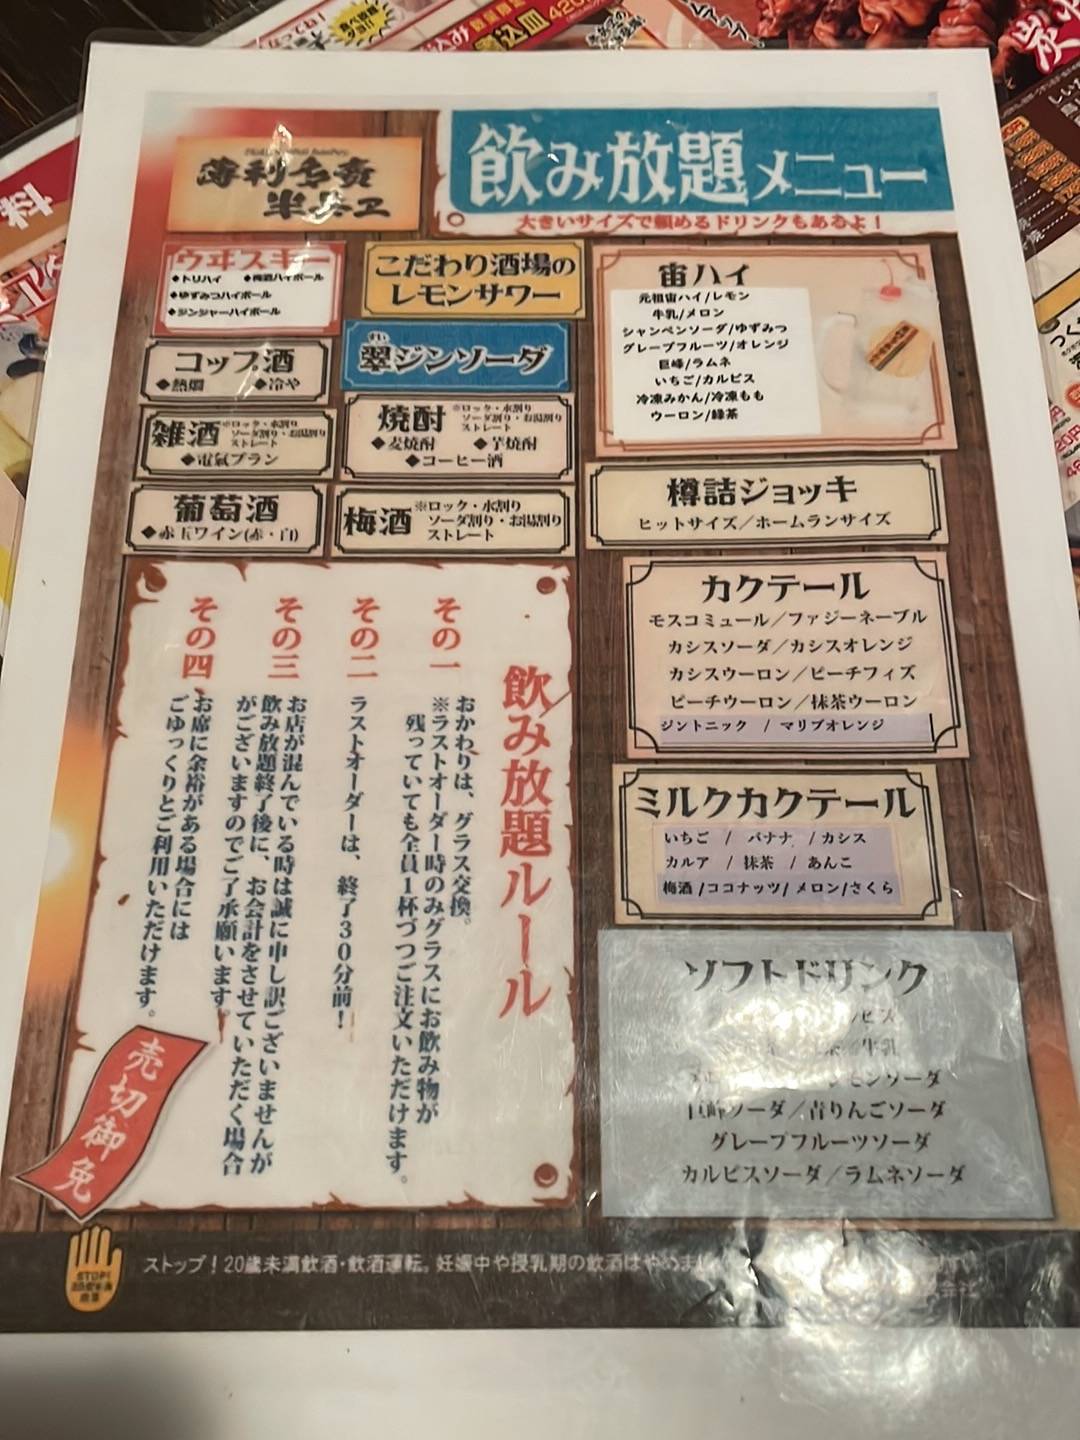 薄利多賣
半兵ヱ
飲み放題メニュー
大きいサイズで頼めるドリンクもあるよ!
ウヰスキー
◆トリハイ ◆梅酒ハイボール
◆ゆずみつハイボール
◆ジンジャーハイボール
こだわり酒場の
レモンサワー
コップ酒
◆熱燗 ◆冷や
すい
翠ジンソーダ
雑酒
※ロック・水割り
ソーダ割り・お湯割り
ストレート
◆電氣ブラン
焼酎
※ロック・水割り
ソーダ割り・お湯割り
ストレート
◆麦焼酎 ◆芋焼酎
◆コーヒー酒
葡萄酒
◆赤玉ワイン(赤・白)
梅酒
※ロック・水割り
ソーダ割り・お湯割り
ストレート
宙ハイ
元祖宙ハイ/レモン
牛乳/メロン
シャンペンソーダ/ゆずみつ
グレープフルーツ/オレンジ
巨峰/ラムネ
いちご/カルピス
冷凍みかん/冷凍もも
ウーロン/緑茶
樽詰ジョッキ
ヒットサイズ/ホームランサイズ
カクテール
モスコミュール/ファジーネーブル
カシスソーダ/カシスオレンジ
カシスウーロン/ピーチフィズ
ピーチウーロン/抹茶ウーロン
ジントニック / マリブオレンジ
ミルクカクテール
いちご / バナナ / カシス
カルア / 抹茶 / あんこ
梅酒 /ココナッツ/ メロン/さくら
ソフトドリンク
ピス
牛乳
モンソーダ
巨峰ソーダ/青りんごソーダ
グレープフルーツソーダ
カルピスソーダ/ラムネソーダ
飲み放題ルール
その一
おかわりは、グラス交換。
※ラストオーダー時のみグラスにお飲み物が
残っていても全員1杯づつご注文いただけます。
その二
ラストオーダーは、終了30分前!
その三
お店が混んでいる時は誠に申し訳ございませんが
飲み放題終了後に、お会計をさせていただく場合
がございますのでご了承願います。
その四
お席に余裕がある場合には
ごゆっくりとご利用いただけます。
売切御免
STOP!
ストップ!20歳未満飲酒・飲酒運転。妊娠中や授乳期の飲酒はやめま